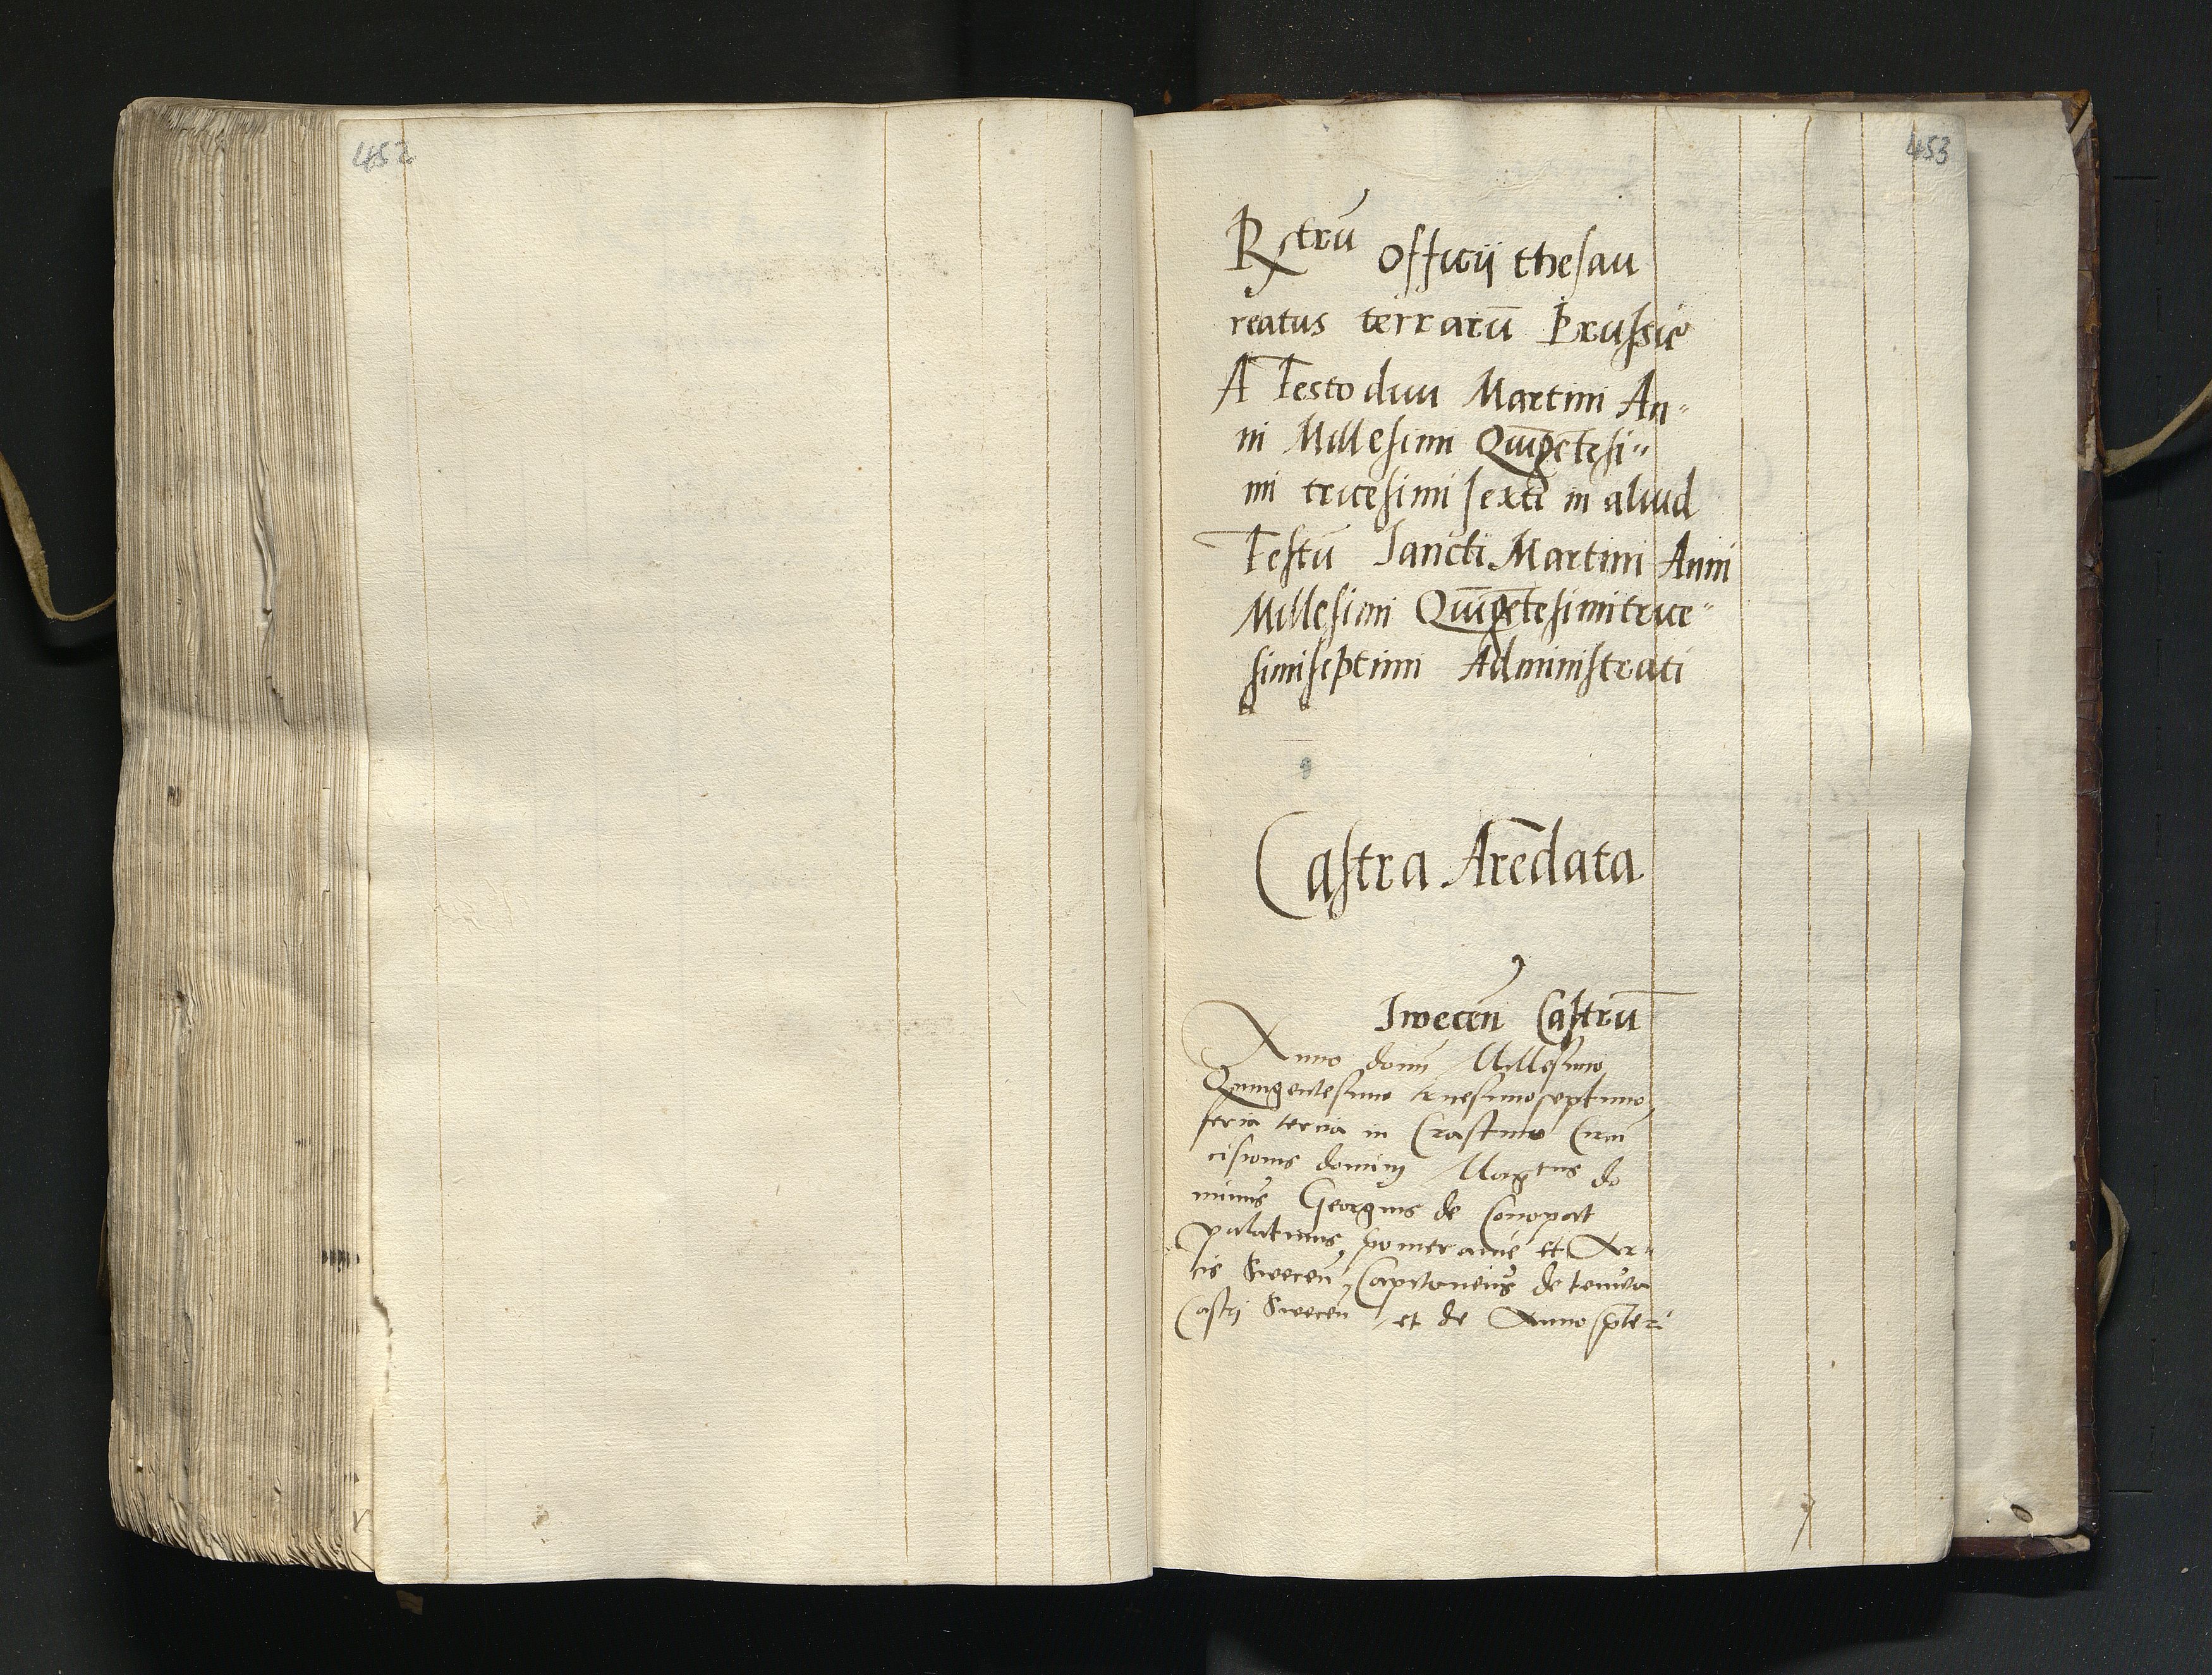 452
453
Rxtrū officij thesau
reatus terrarū Prussie
A Festo diui Martini An-
ni Millesimi Quīgētesi-
mi tricesimi sexti in aliud
Festū Sancti Martini Anni
Millesimi Quīgētesimi trice-
simi septimi Administrati
Castra Arēdata
Swecen̄ Castrū
Anno domī Millesimo
Quingentesimo tricesimo septimo
feria tercia in Crastino Circū
cisionis domini Mag^cus do
minus Georgius de Conopat
palatinus pomeranie et Ar-
cis Swecen̄ Capitaneus de tenuta
Castri Swecen̄ et de Anno p̄teri